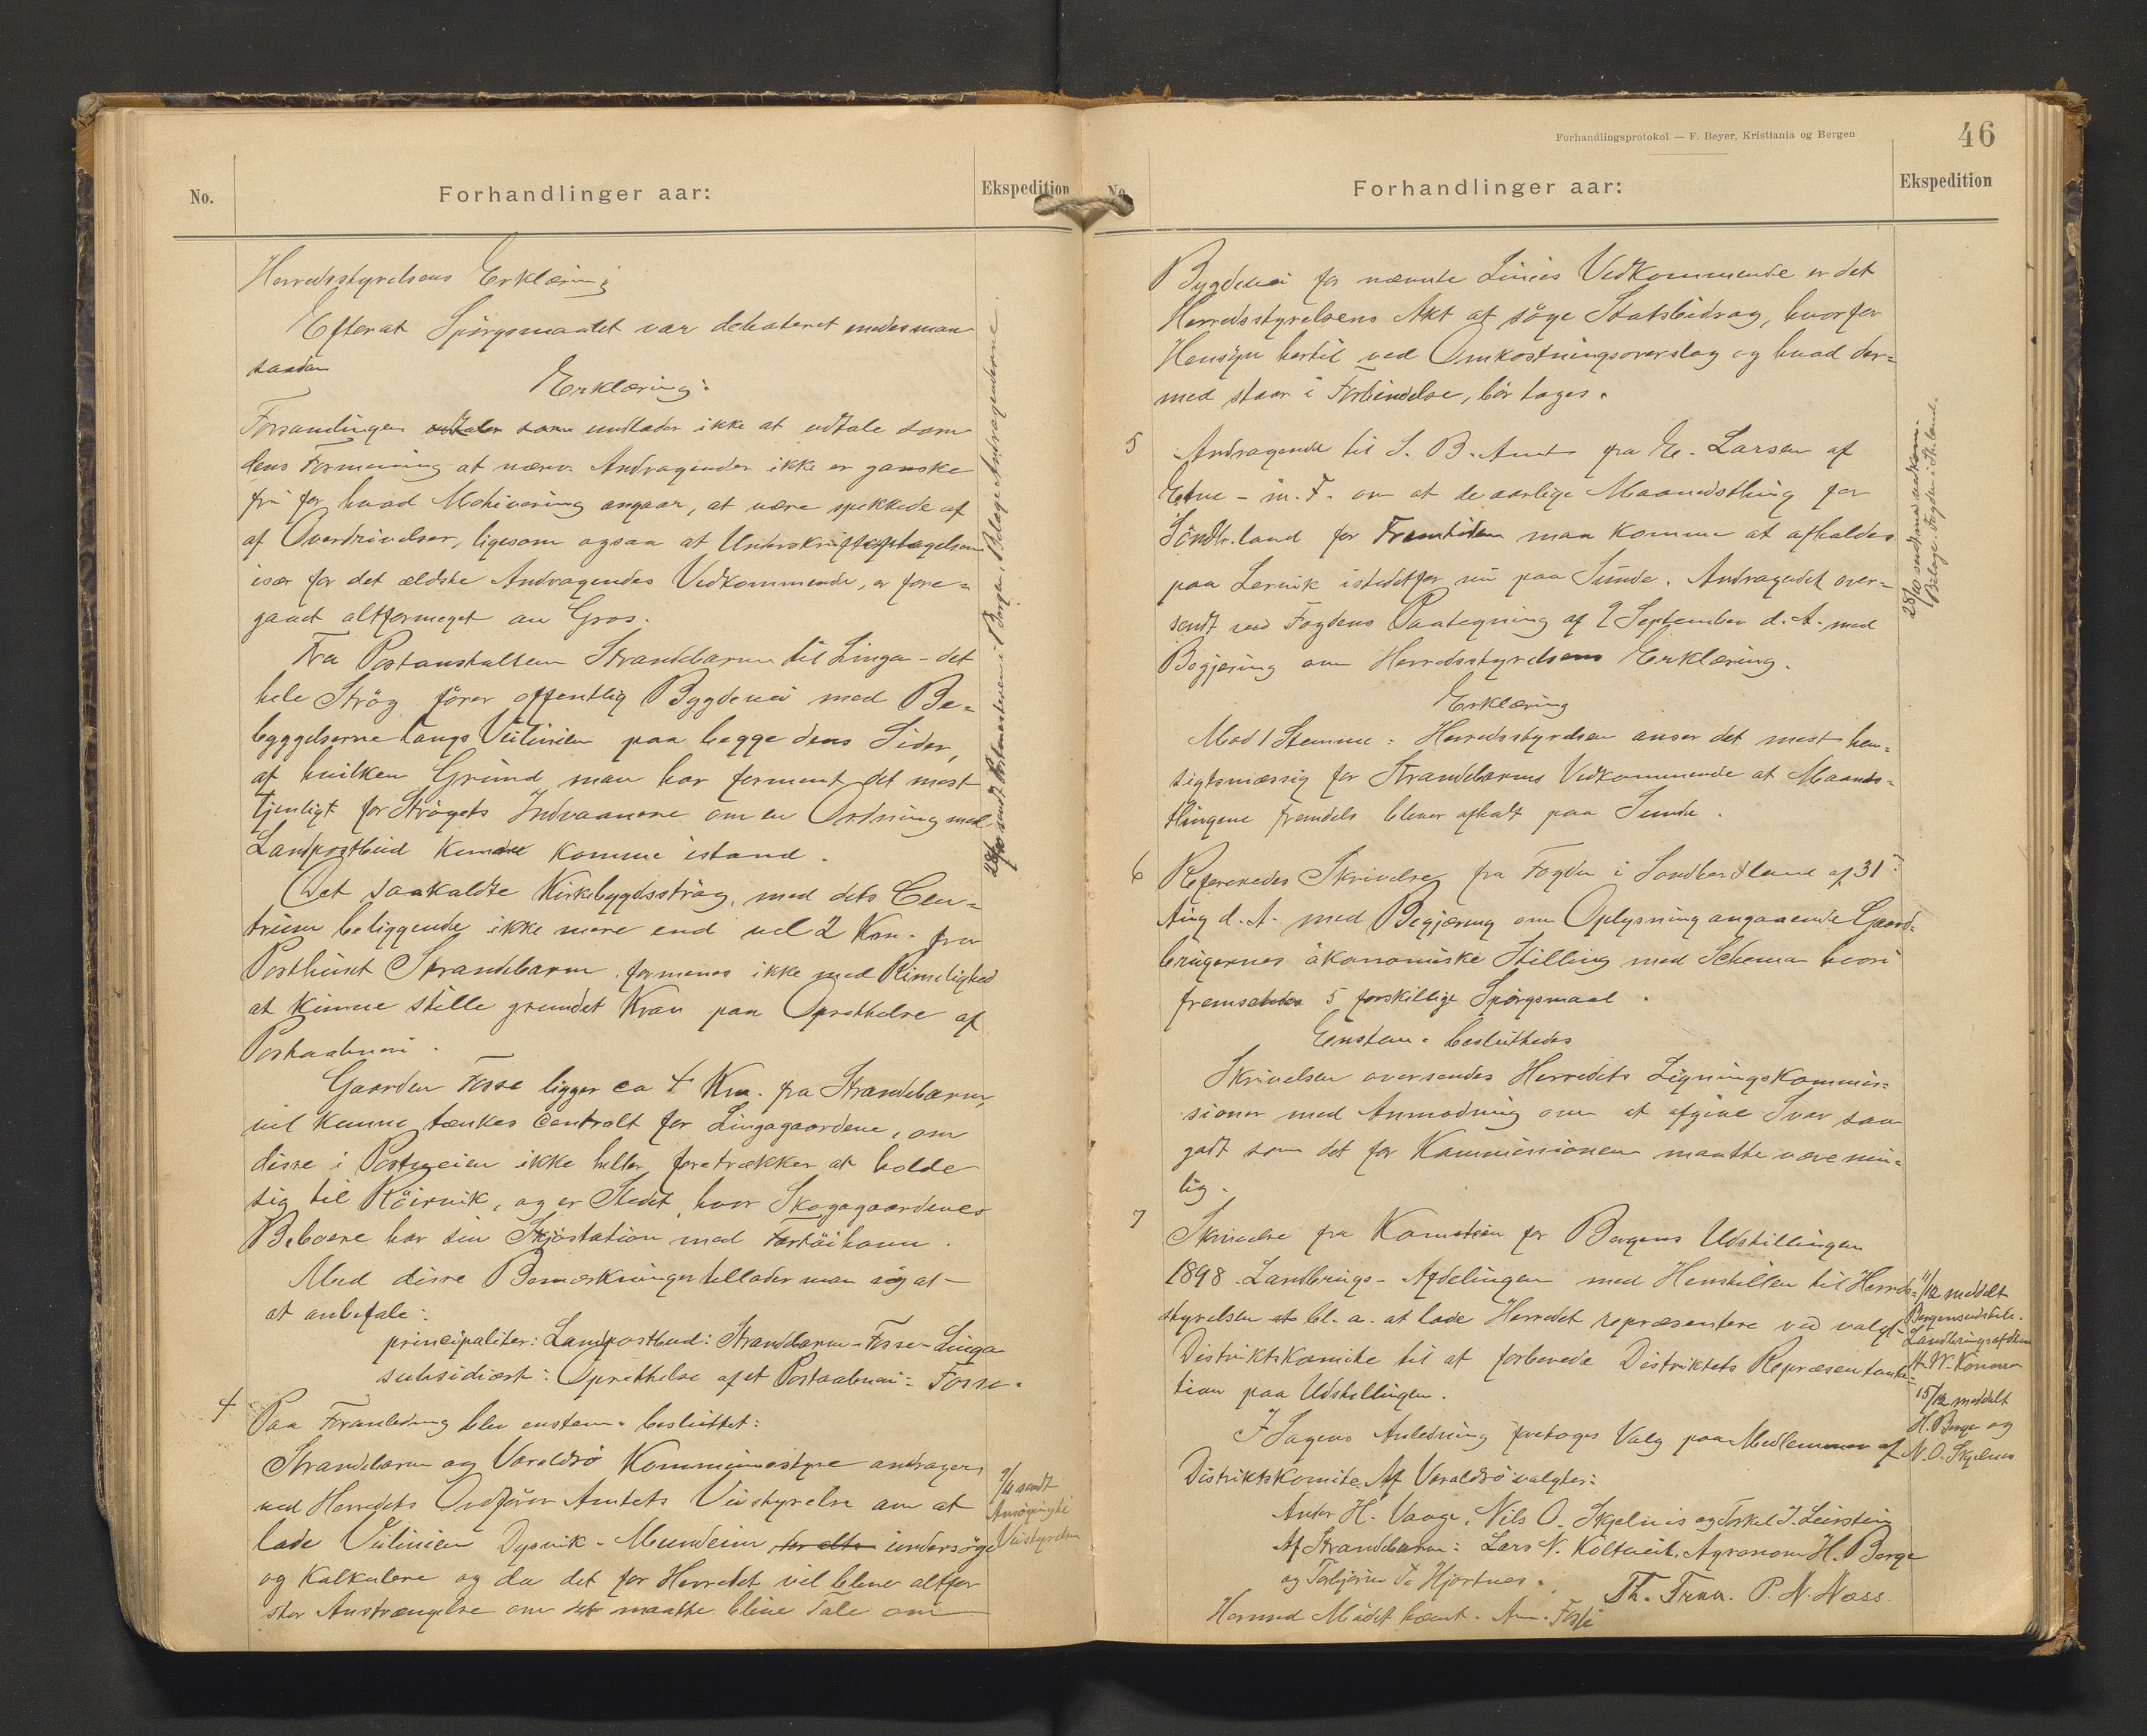 No.
Forhandlinger aar:
Ekspedition
Herredsstyrelsens Erklæring
Efterat Spörgsmaalet var debateret
saadan
Erklæring:
Forsamlingen undlader ikke at udtale som
dens Formening at nærv. Andragender ikke er ganske
fri for hvad Motivering angaar, at være spekkede af
af Overdrivelser, ligesom ogsaa at Underskriftoptagelsen
især for det ældste Andragendes Vedkommende, er fore=
gaaet altformeget en Gros.
Fra Postanstalten Strandebarm til Linga - det
hele Strög förer offentlig Bygdevei med Be=
byggelserne langs Veilinien paa begge dens Sider,
af hvilken Grund man har forment det mest
tjenligt for Strögets Indvaanere om en Ordning med
Landpostbud kunde komme istand.
Det saakaldte Kirkebygdsströg, med dets Cen=
trum beliggende ikke mere end vel 2 Km. fra
Posthuset Strandebarm formenes ikke med Rimelighed
at kunne stille grundet Krav paa Oprettelse af
Postaabneri.
Gaarden Fosse ligger ca 4 Km. fra Strandebarm,
vil kunne tænkes centralt for Lingagaardene, om
disse i Postveien ikke heller foretrækker at holde
sig til Röirvik, og er Stedet, hvor Skogagaardenes
Beboere har sin Sjöstation med Fartöihavn.
Med disse Bemærkninger tillader man sig at
at anbefale:
principaliter: Landpostbud: Strandebarm - Fosse - Linga
subsidiært: Oprettelse af et Postaabneri: Fosse.
28/10 sendt Postmesteren i Bergen, Bilage Andragenderne.
4
Paa Foranledning blev enstem. besluttet:
Strandebarm og Varaldsö Kommunestyre andrager
ved Herredets Ordförer Amtets Veistyrelse om at
lade Veilinien Dysvik - Mundeim undersöge
og kalkulere og da det for Herredet vil blive altfor
stor Anstrængelse om det maatte blive Tale om
sendt
Veistyrelsen
Forhandlingsprotokol — F. Beyer, Kristiania og Bergen
46
No.
Forhandlinger aar:
Ekspedition
Bygdevei for nævnte Linies Vedkommende er det
Herredsstyrelsens Akt at söge Statsbidrag, hvorfor
Hensyn hertil ved Omkostningsoverslag og hvad der=
med staar i Forbindelse, bör tages.
5
Andragende til S. B. Amt fra E. Larsen af
Etne - m. F. om at de aarlige Maanedsthing for
Söndh.land for Fremtiden maa komme at afholdes
paa Lervik istedetfor nu paa Sunde. Andragendet over=
sendt ved Fogdens Paategning af 2 September d. A. med
Begjæring om Herredsstyrelsens Erklæring.
Erklæring
Mod 1 Stemme: Herredsstyrelsen anser det mest hen=
sigtsmæssig for Strandebarms Vedkommende at Maaneds=
thingene fremdeles bliver afholt paa Sunde.
6
Refereredes Skrivelse fra Fogden i Söndhordland af 31
Aug d. A. med Begjæring om Oplysning angaaende Gaard=
brugernes ökonomiske Stilling med Schema hvori
fremsendes 5 forskillige Spörgsmaal.
Enstem. besluttedes
Skrivelsen oversendes Herredets Ligningskommis=
sioner med Anmodning om at afgive Svar saa
godt som det for Kommissionen maatte være mu=
lig.
7
Skrivelse fra Komiteen for Bergens Udstillingen
1898 Landbrugs-Afdelingen med Henstillen til Herreds=
styrelsen bl. a. at lade Herredet repræsentere ved valgt
Distriktskomite til at forberede Distriktets Repræsenta
tion paa Udstillingen.
I Sagens Anledning foretoges Valg paa Medlemmer af
Distriktskomite. Af Varaldsö valgtes:
H. Vaage, Nils O. Skjelnes og Torkel J. Leirstein
Af Strandebarm: Lars N. Koltveit, Agronom H. Berge
og Torbjörn Hjortnes.
Hermed Mödet hævet. Am. Fosse Th. Traa. P. N. Næss.
28/10 Bilage. Fogden i
11/12 meddelt
Bergensudstill.
Landbrugsafdelin
15/12 meddelt
H. Berge og
N. O. Skjelnes